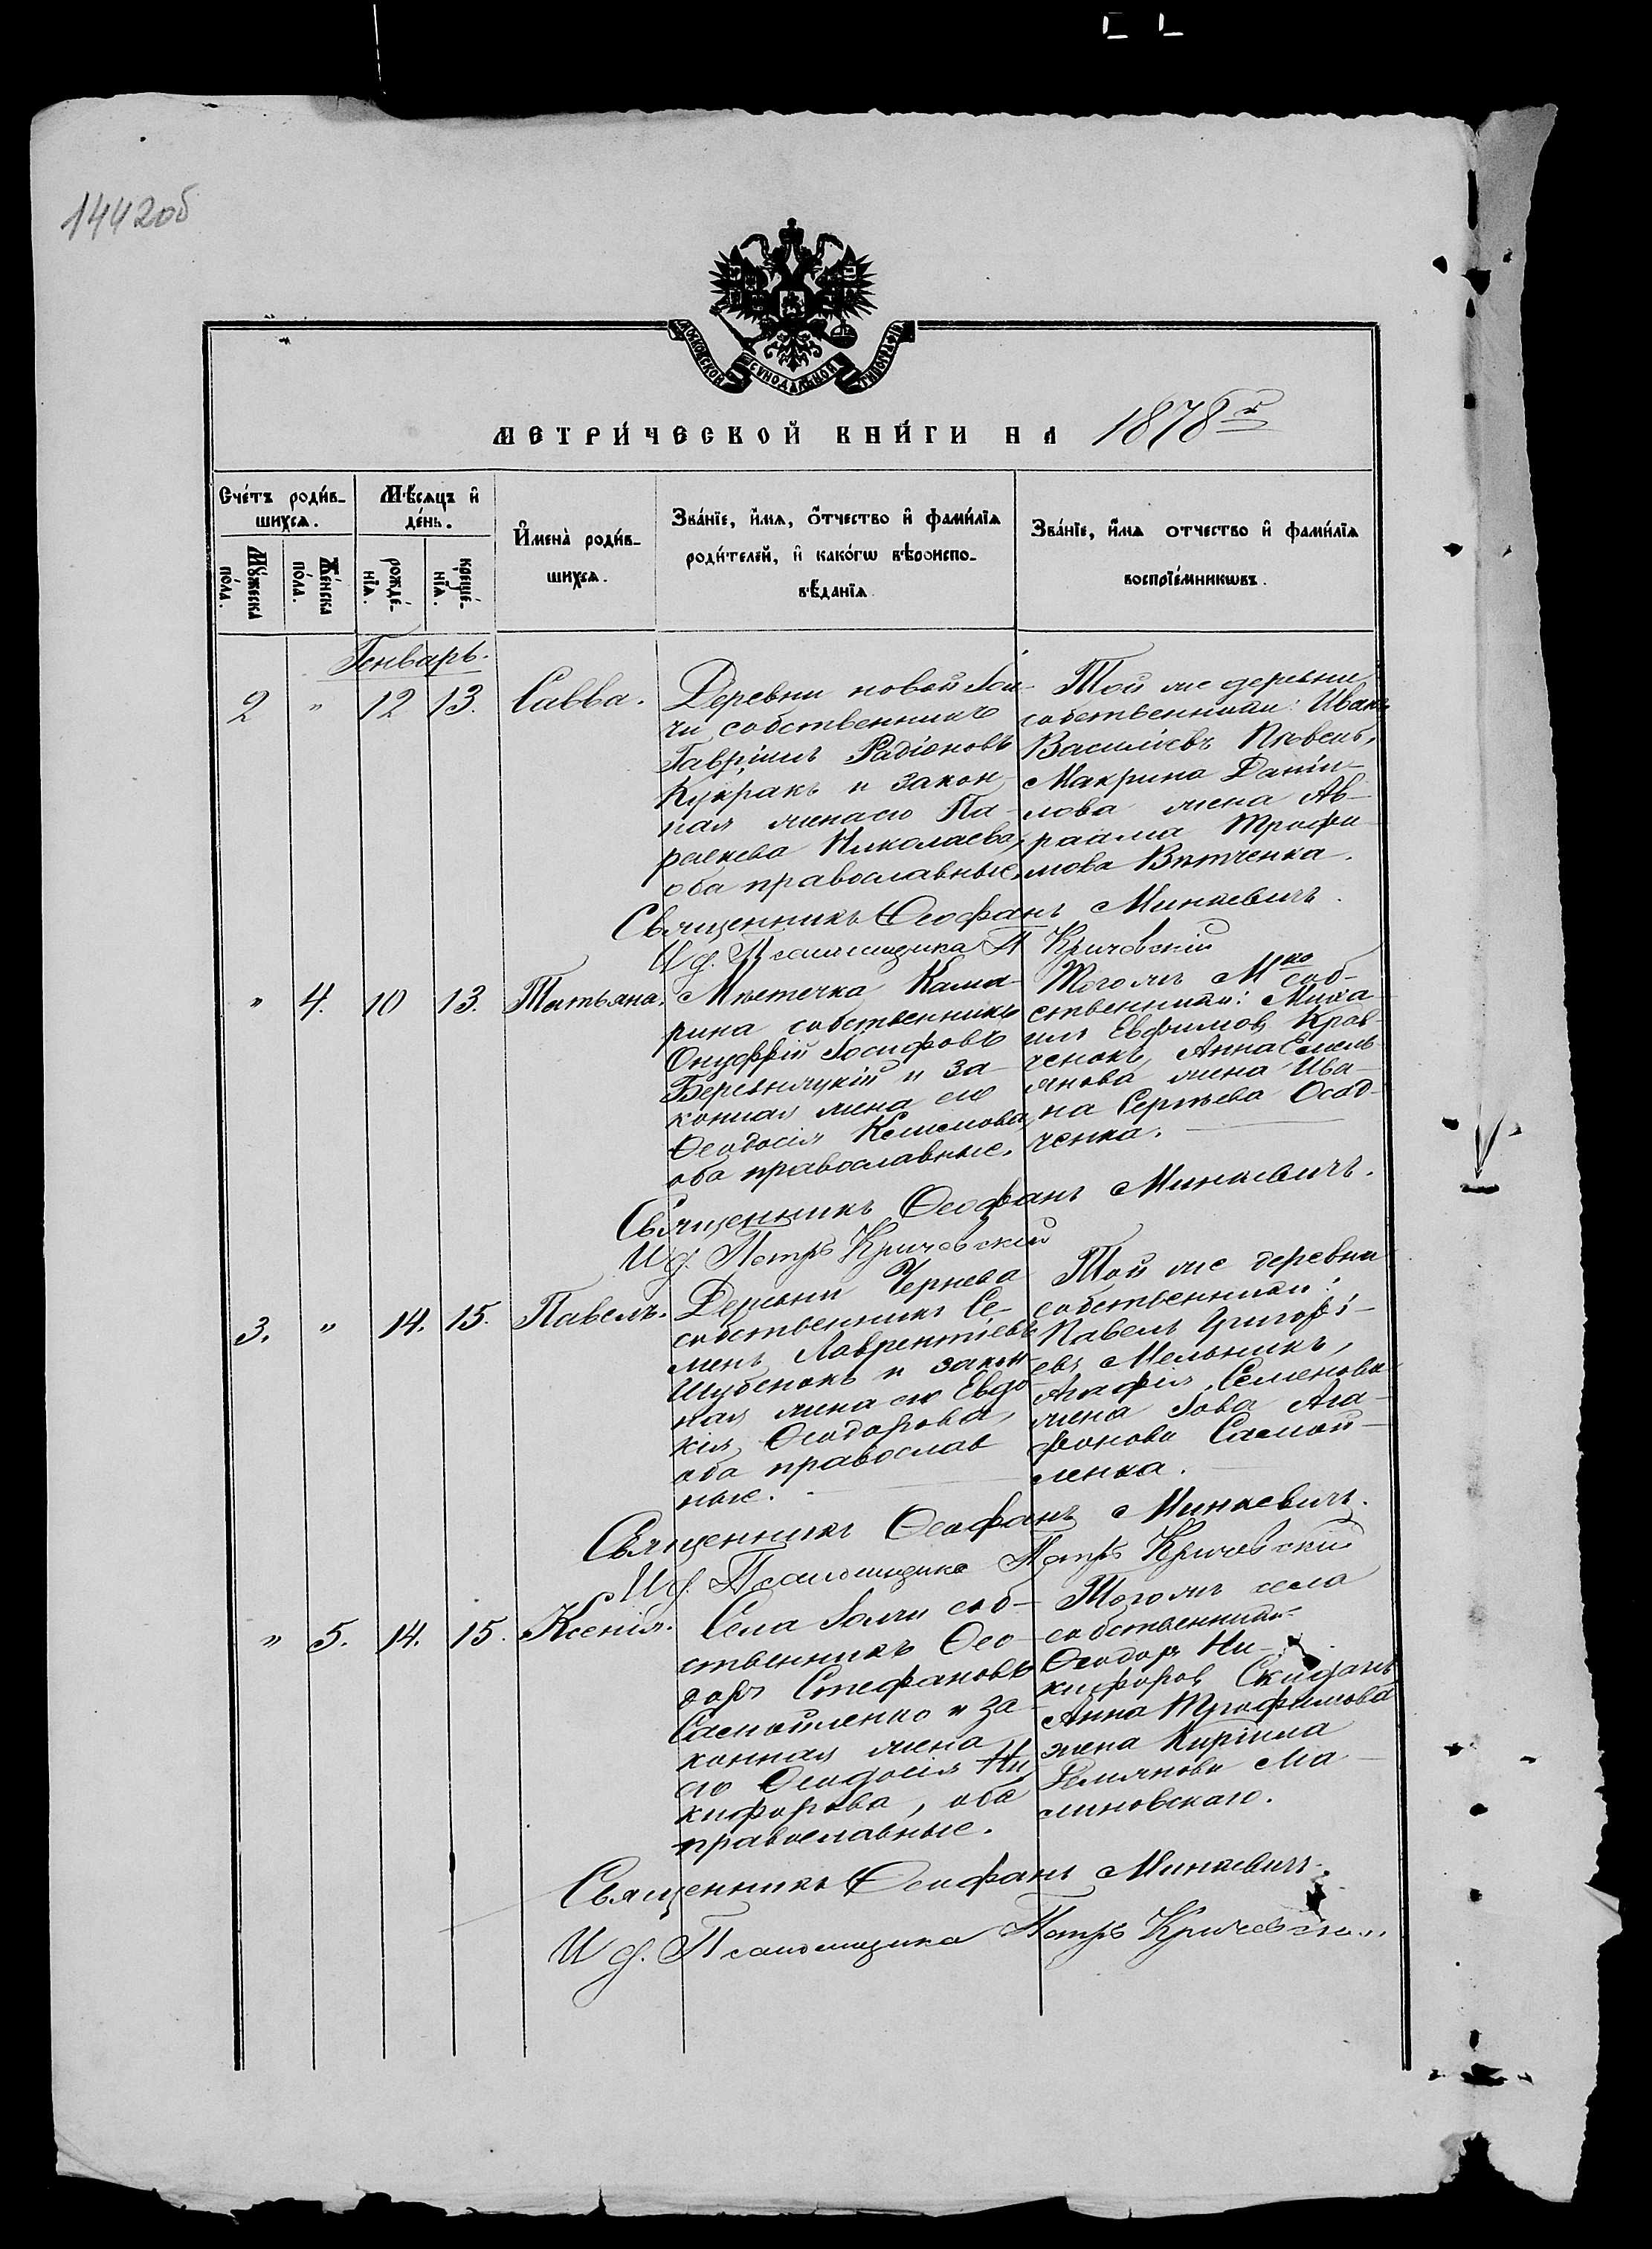 1442об
МОСКОВСКОЙ СѴНОДАЛЬНОЙ ТИПОГРАФІИ
МЕТРИ́ЧЕСКОЙ КНИ́ГИ НА 1878 г
Сче́тъ роди́в-
шихся.
Мѣ́сяцъ и҆
де́нь.
И҆мена̀ роди́в-
шихся.
Зва́нїе, и҆́мя, ѻ҆́тчество и҆ фами́лїя
роди́телей, и҆ како́гѡ вѣроиспо-
вѣ́данїя.
Зва́нїе, и҆́мя отчество и҆ фами́лїя
воспрїе́мникѡвъ.
Мꙋ́жеска
по́ла.
Же́нска
по́ла.
рожде́-
нїя.
креще́-
нїя.
Генварь.
2 " 12 13. Савва.
Деревни новой Іол-
чи собственникъ
Гавріилъ Радіоновъ
Кукракъ и закон-
ная жена его Па-
раскева Николаева,
оба православные.
Той же деревни
собственники: Иванъ
Василіевъ Пѣвень,
Макрина Даніи-
лова жена Ав-
раама Трофи-
мова Вятченка.
Священникъ Ѳеофанъ Минкевичъ.
И д. Псаломщика П Кричевскій
" 4. 10 13. Татьяна.
Мѣстечка Кама-
рина собственникъ
Онуфрій Іосифовъ
Березняцкій и за-
конная жена его
Ѳеодосія Климова,
оба православные.
Тогожъ М-ка соб-
ственники: Миха-
илъ Евфимовъ Крав-
ченокъ, Анна Емель-
янова жена Ива-
на Сергѣева Осад-
ченка.
Священникъ Ѳеофанъ Минкевичъ.
И д. Петръ Кричевскій
3. " 14. 15. Павелъ.
Деревни Чернева
собственникъ Се-
менъ Лаврентіевъ
Шубенокъ и закон-
ная жена его Евдо-
кія Ѳеодорова,
оба православ
ные.
Той же деревни
собственники:
Павелъ Григорі-
евъ Мельникъ,
Агафія Семенова
жена Іова Ага-
фонова Самой-
ленка.
Священникъ Ѳеофанъ Минкевичъ.
И д. Псаломщика Петръ Кричевскій
" 5. 14. 15. Ксенія.
Села Іолчи соб-
ственникъ Ѳео-
доръ Стефановъ
Самойленко и за-
конная жена
его Ѳеодосія Ни
кифорова, оба
православные.
Тогожъ села
собственники
Ѳеодоръ Ни-
кифоровъ Скиданъ
Анна Трофимова
жена Кирилла
Демянова Ма-
линовскаго.
Священникъ Ѳеофанъ Минкевичъ.
И д. Псаломщика Петръ Кричевскій